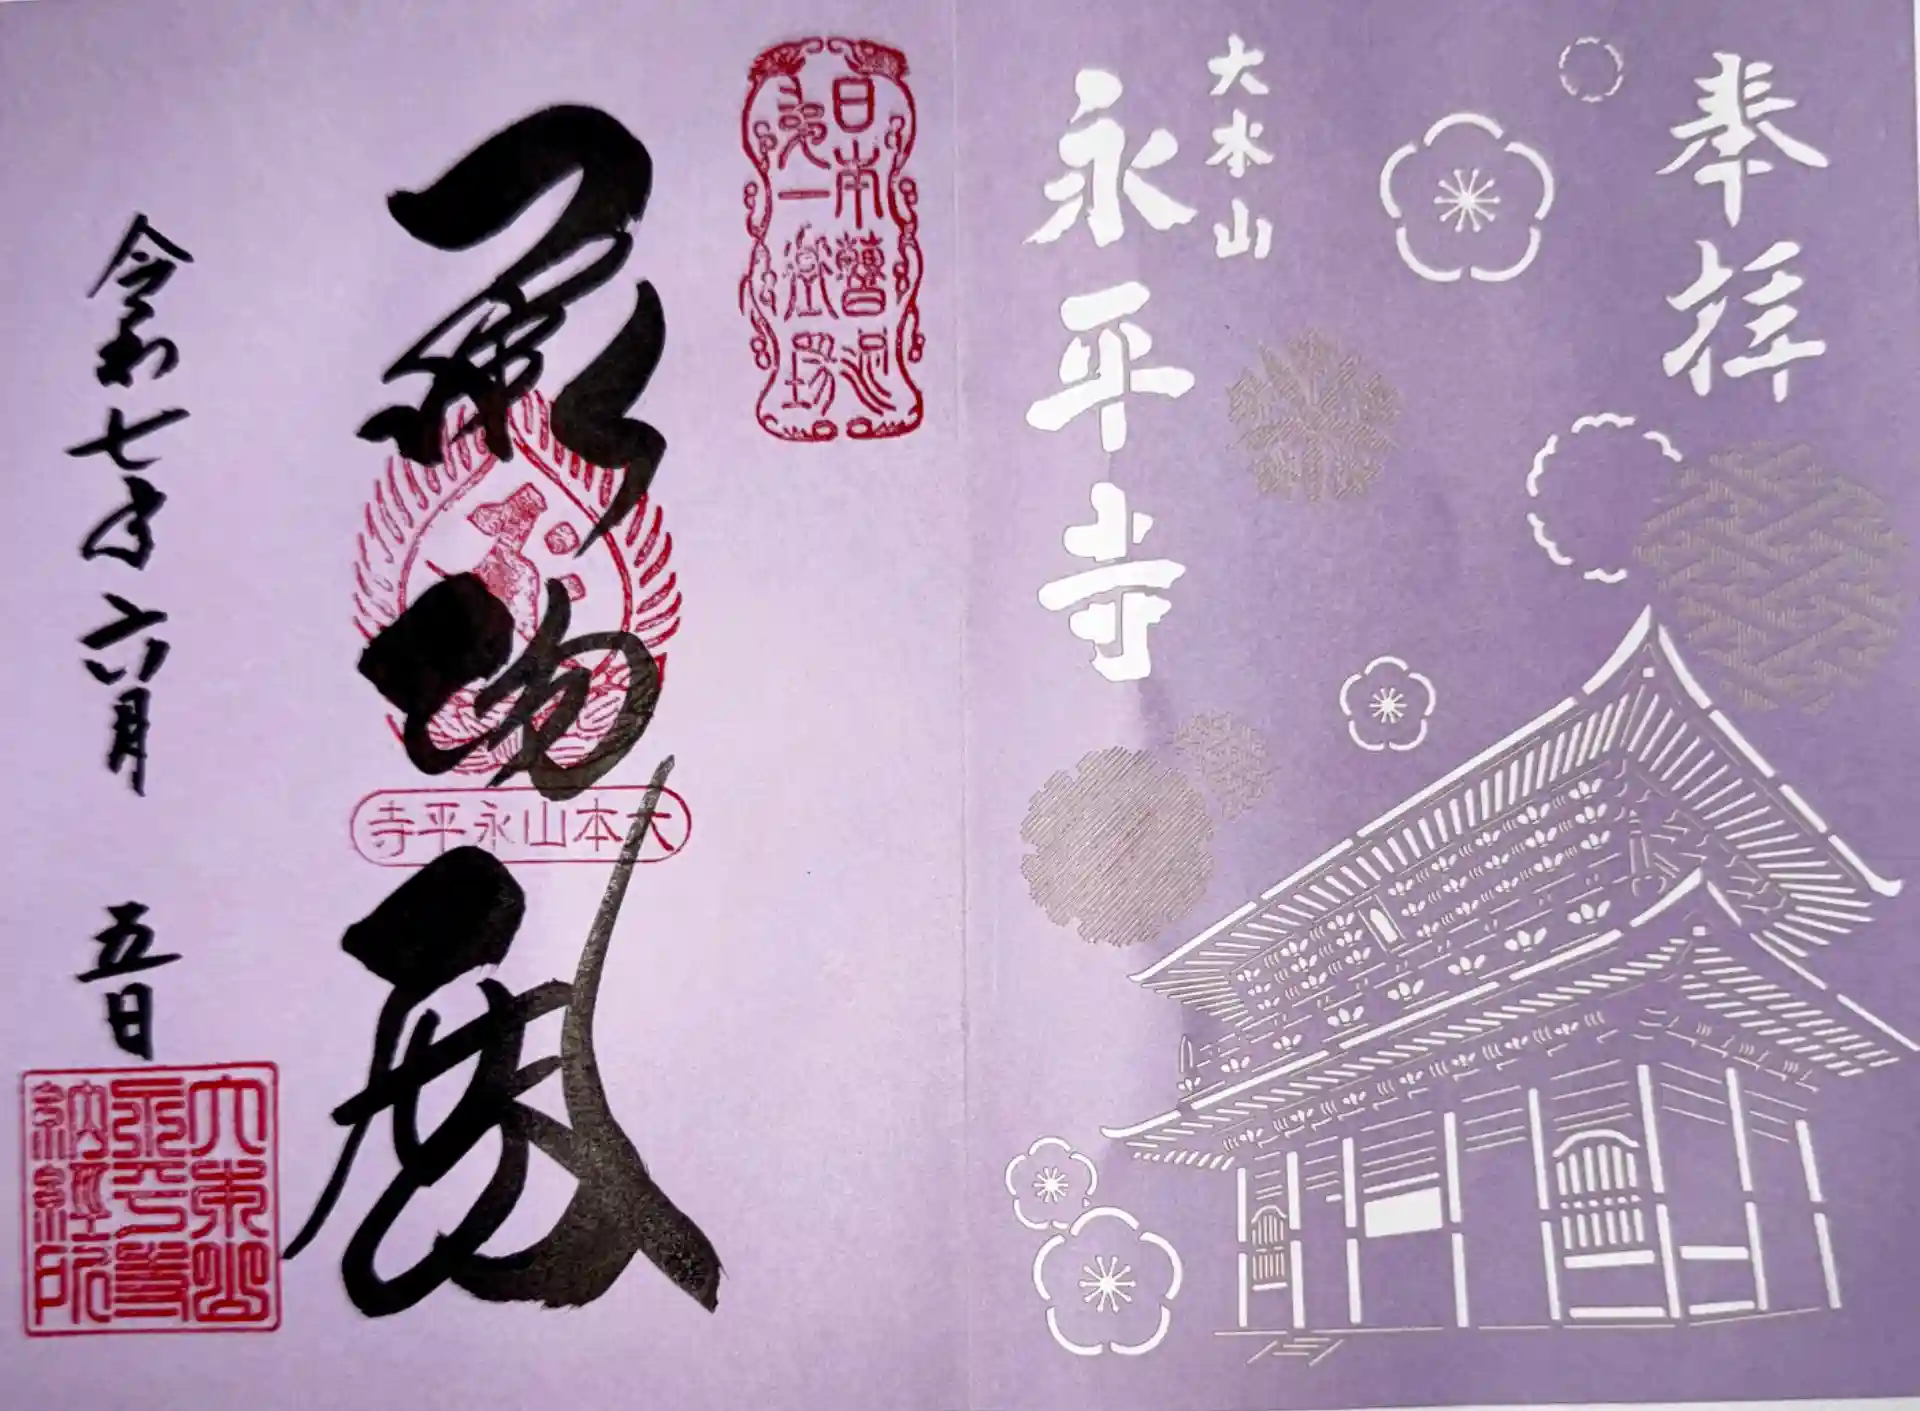 奉拝
大本山
永平寺
日本曹洞
第一道場
承陽殿
大本山永平寺
令和七年六月五日
大本山
永平寺
納經所